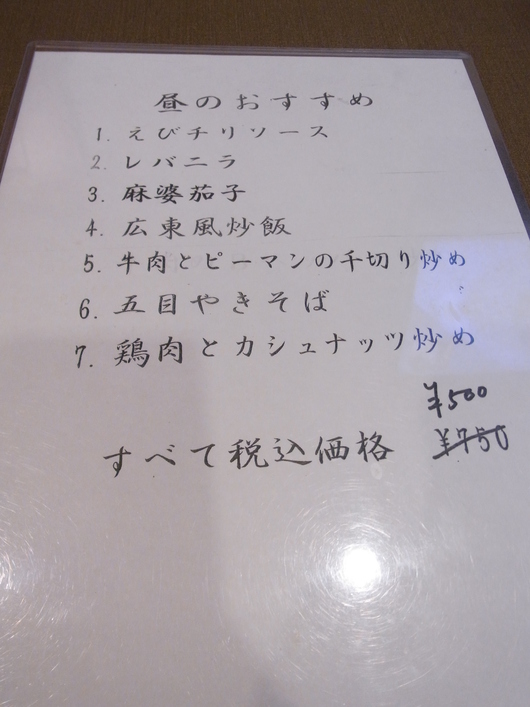 昼のおすすめ
1. えびチリソース
2. レバニラ
3. 麻婆茄子
4. 広東風炒飯
5. 牛肉とピーマンの千切り炒め
6. 五目やきそば
7. 鶏肉とカシュナッツ炒め
¥500
すべて税込価格 ¥750